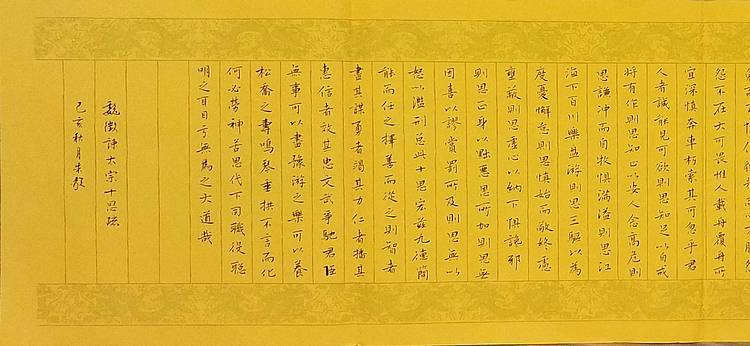 怨不在大可畏惟人載舟覆舟所
宜深慎奔車朽索其可忽乎君
人者誠能見可欲則思知足以自戒
將有作則思知止以安人念高危則
思謙冲而自牧懼滿溢則思江
海下百川樂盤游則思三驅以為
度憂懈怠則思慎始而敬終慮
壅蔽則思虛心以納下懼讒邪
則思正身以黜惡恩所加則思無
因喜以謬賞罰所及則思無以
怒以濫刑總此十思宏茲九德簡
能而任之擇善而從之則智者
盡其謀勇者竭其力仁者播其
惠信者效其忠文武爭馳君臣
無事可以盡豫游之樂可以養
松喬之壽鳴琴垂拱不言而化
何必勞神苦思代下司職役聰
明之耳目亏無為之大道哉
魏徵諫太宗十思疏
己亥秋月朱毅